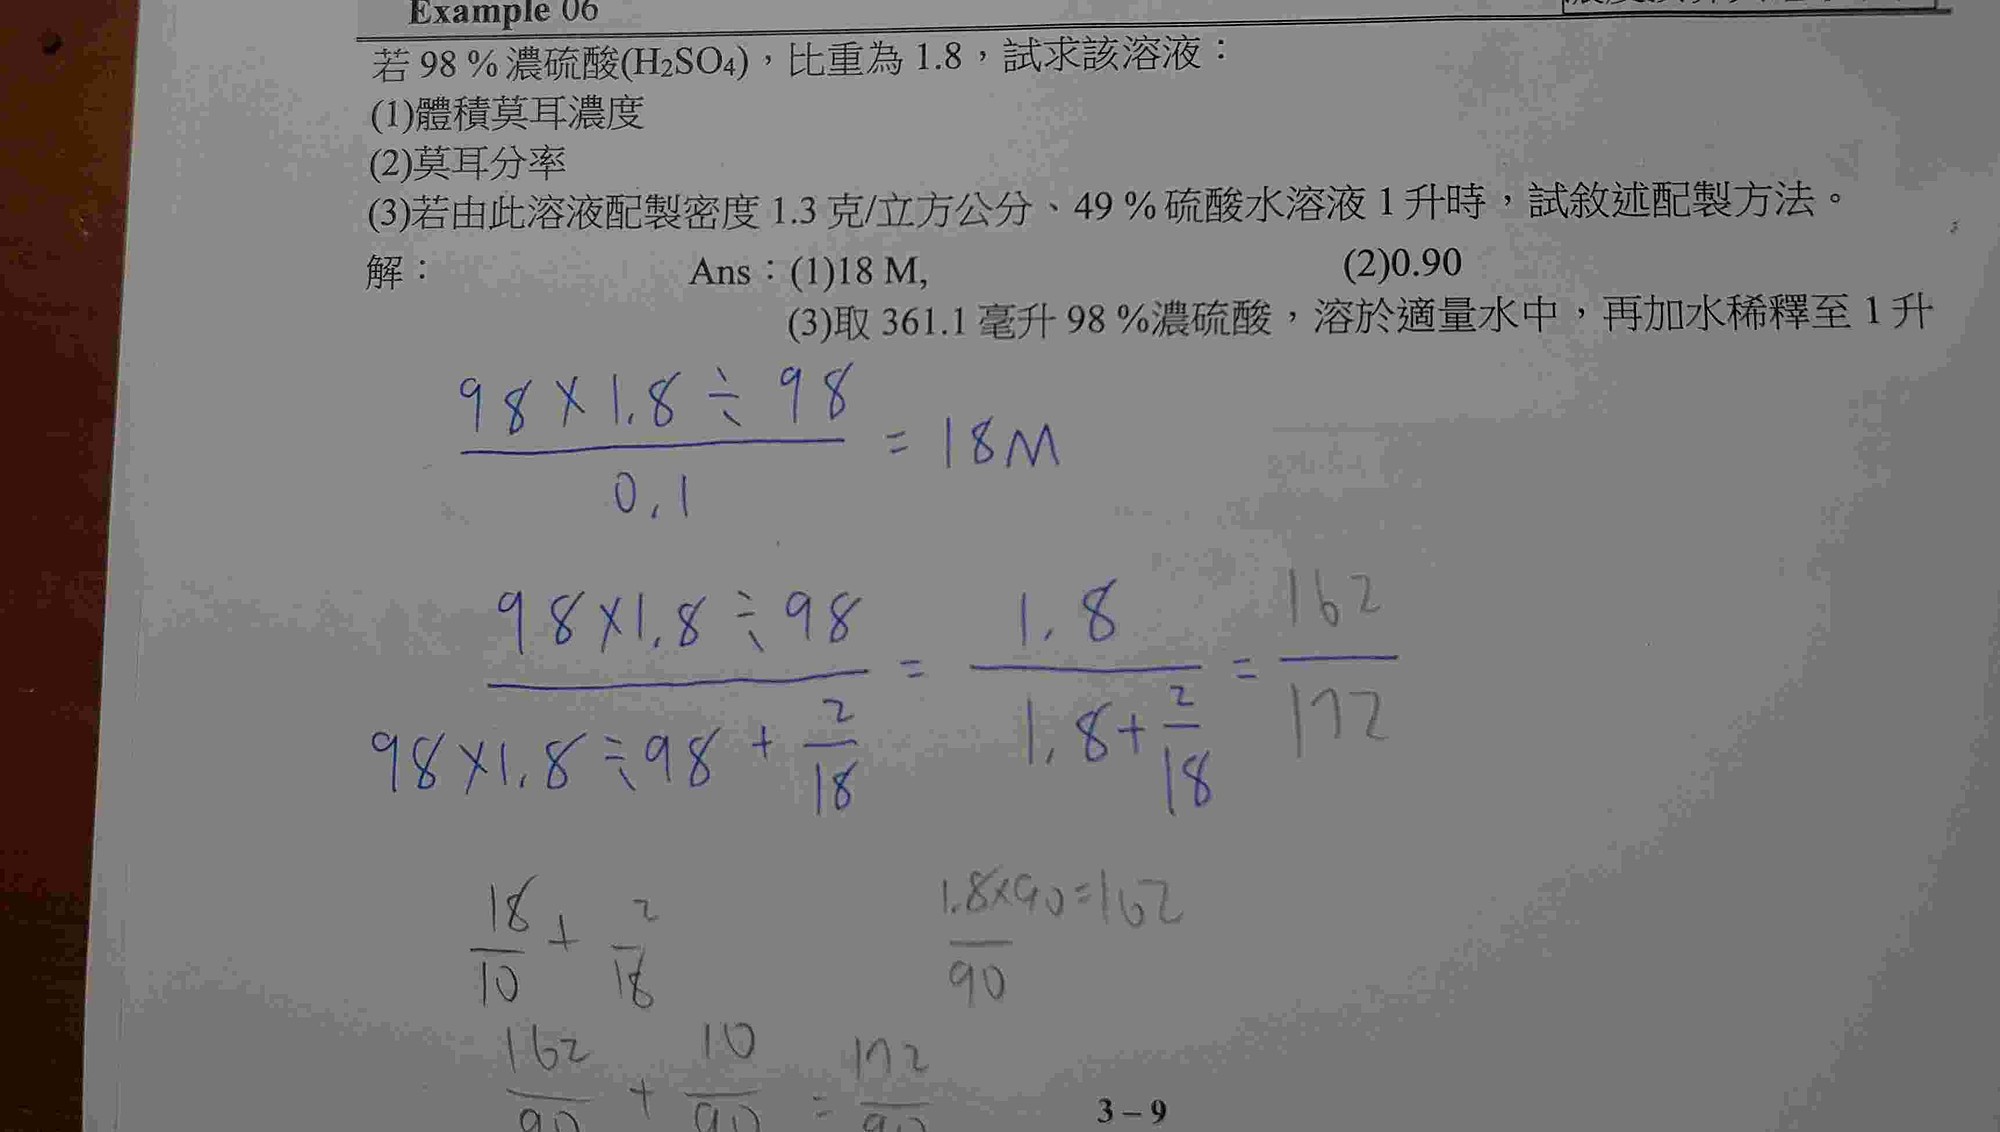 Example 06
若 98 % 濃硫酸(H₂SO₄)，比重為 1.8，試求該溶液：
(1)體積莫耳濃度
(2)莫耳分率
(3)若由此溶液配製密度 1.3 克/立方公分、49 % 硫酸水溶液 1 升時，試敘述配製方法。
解： Ans：(1)18 M, (2)0.90
(3)取 361.1 毫升 98 %濃硫酸，溶於適量水中，再加水稀釋至 1 升
98 × 1.8 ÷ 98
= 18M
0.1
98×1.8÷98 1.8 162
= =
98×1.8÷98 + 2/18 1.8+ 2/18 172
18/10 + 2/18 1.8×90=162
90
162/90 + 10/90 = 172/90
3－9